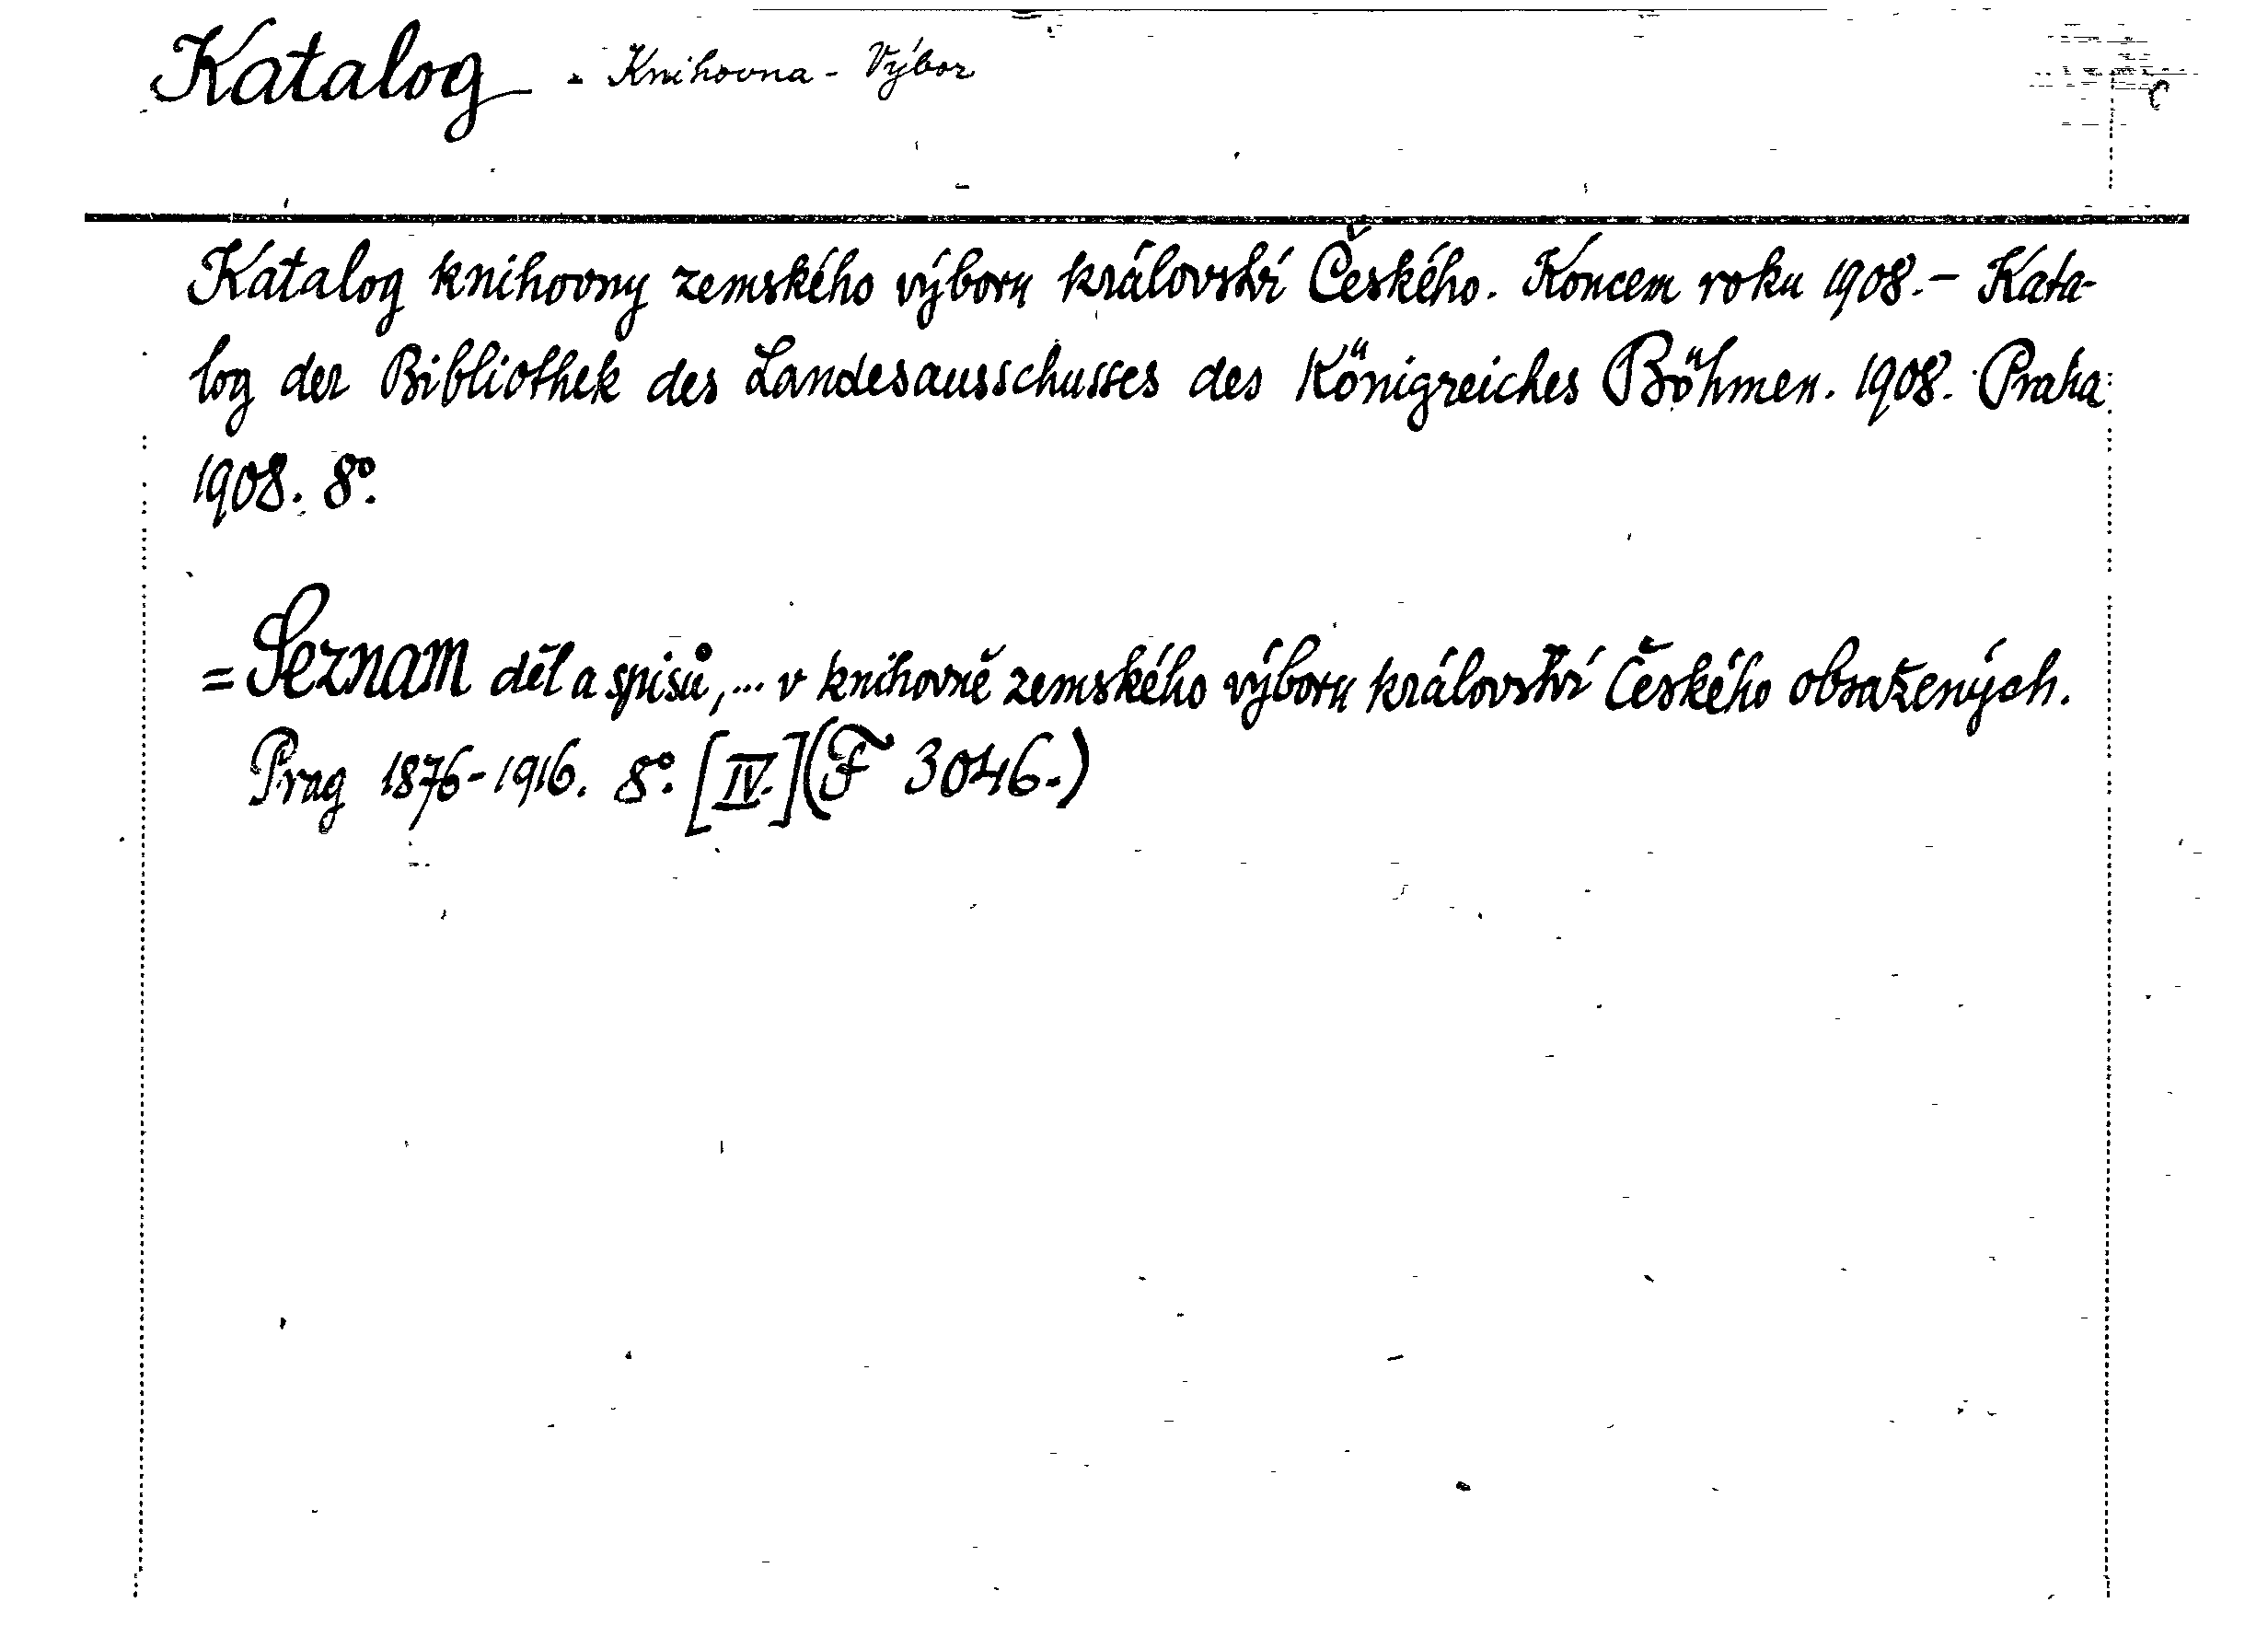 Katalog - Knihovna - Výbor
Katalog knihovny zemského výboru království Českého. Koncem roku 1908.- Kata-
log der Bibliothek des Landesausschusses des Königreiches Böhmen. 1908. Praha
1908. 8°.
= Seznam děl a spisů, ... v knihovně zemského výboru království Českého obsažených.
Prag 1876-1916. 8°. [IV.] (F 3046.)